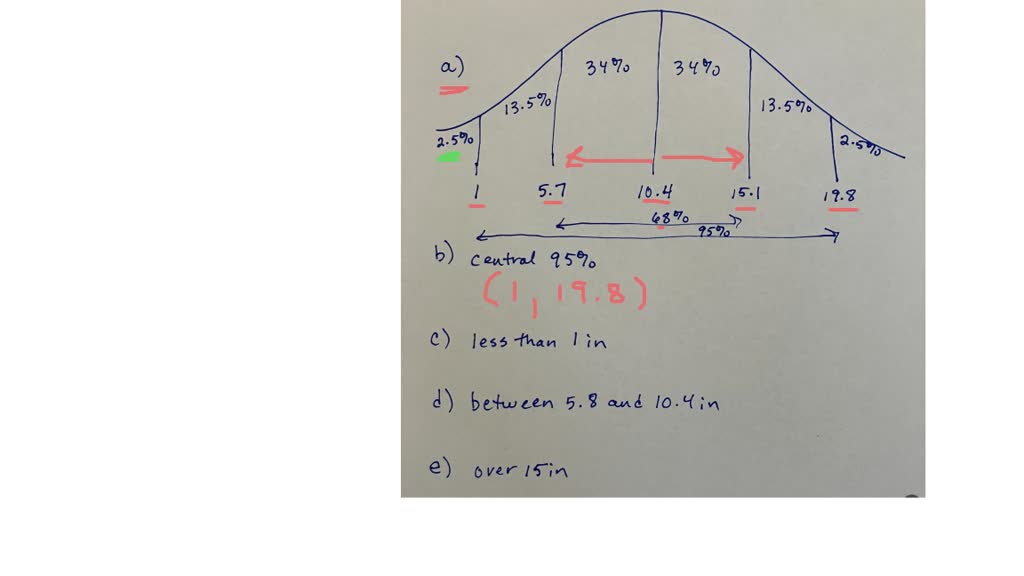 a)
34% 34%
13.5% 13.5%
2.5% 2.5%
1 5.7 10.4 15.1 19.8
68%
95%
b) central 95%
(1, 19.8)
c) less than 1 in
d) between 5.8 and 10.4 in
e) over 15 in